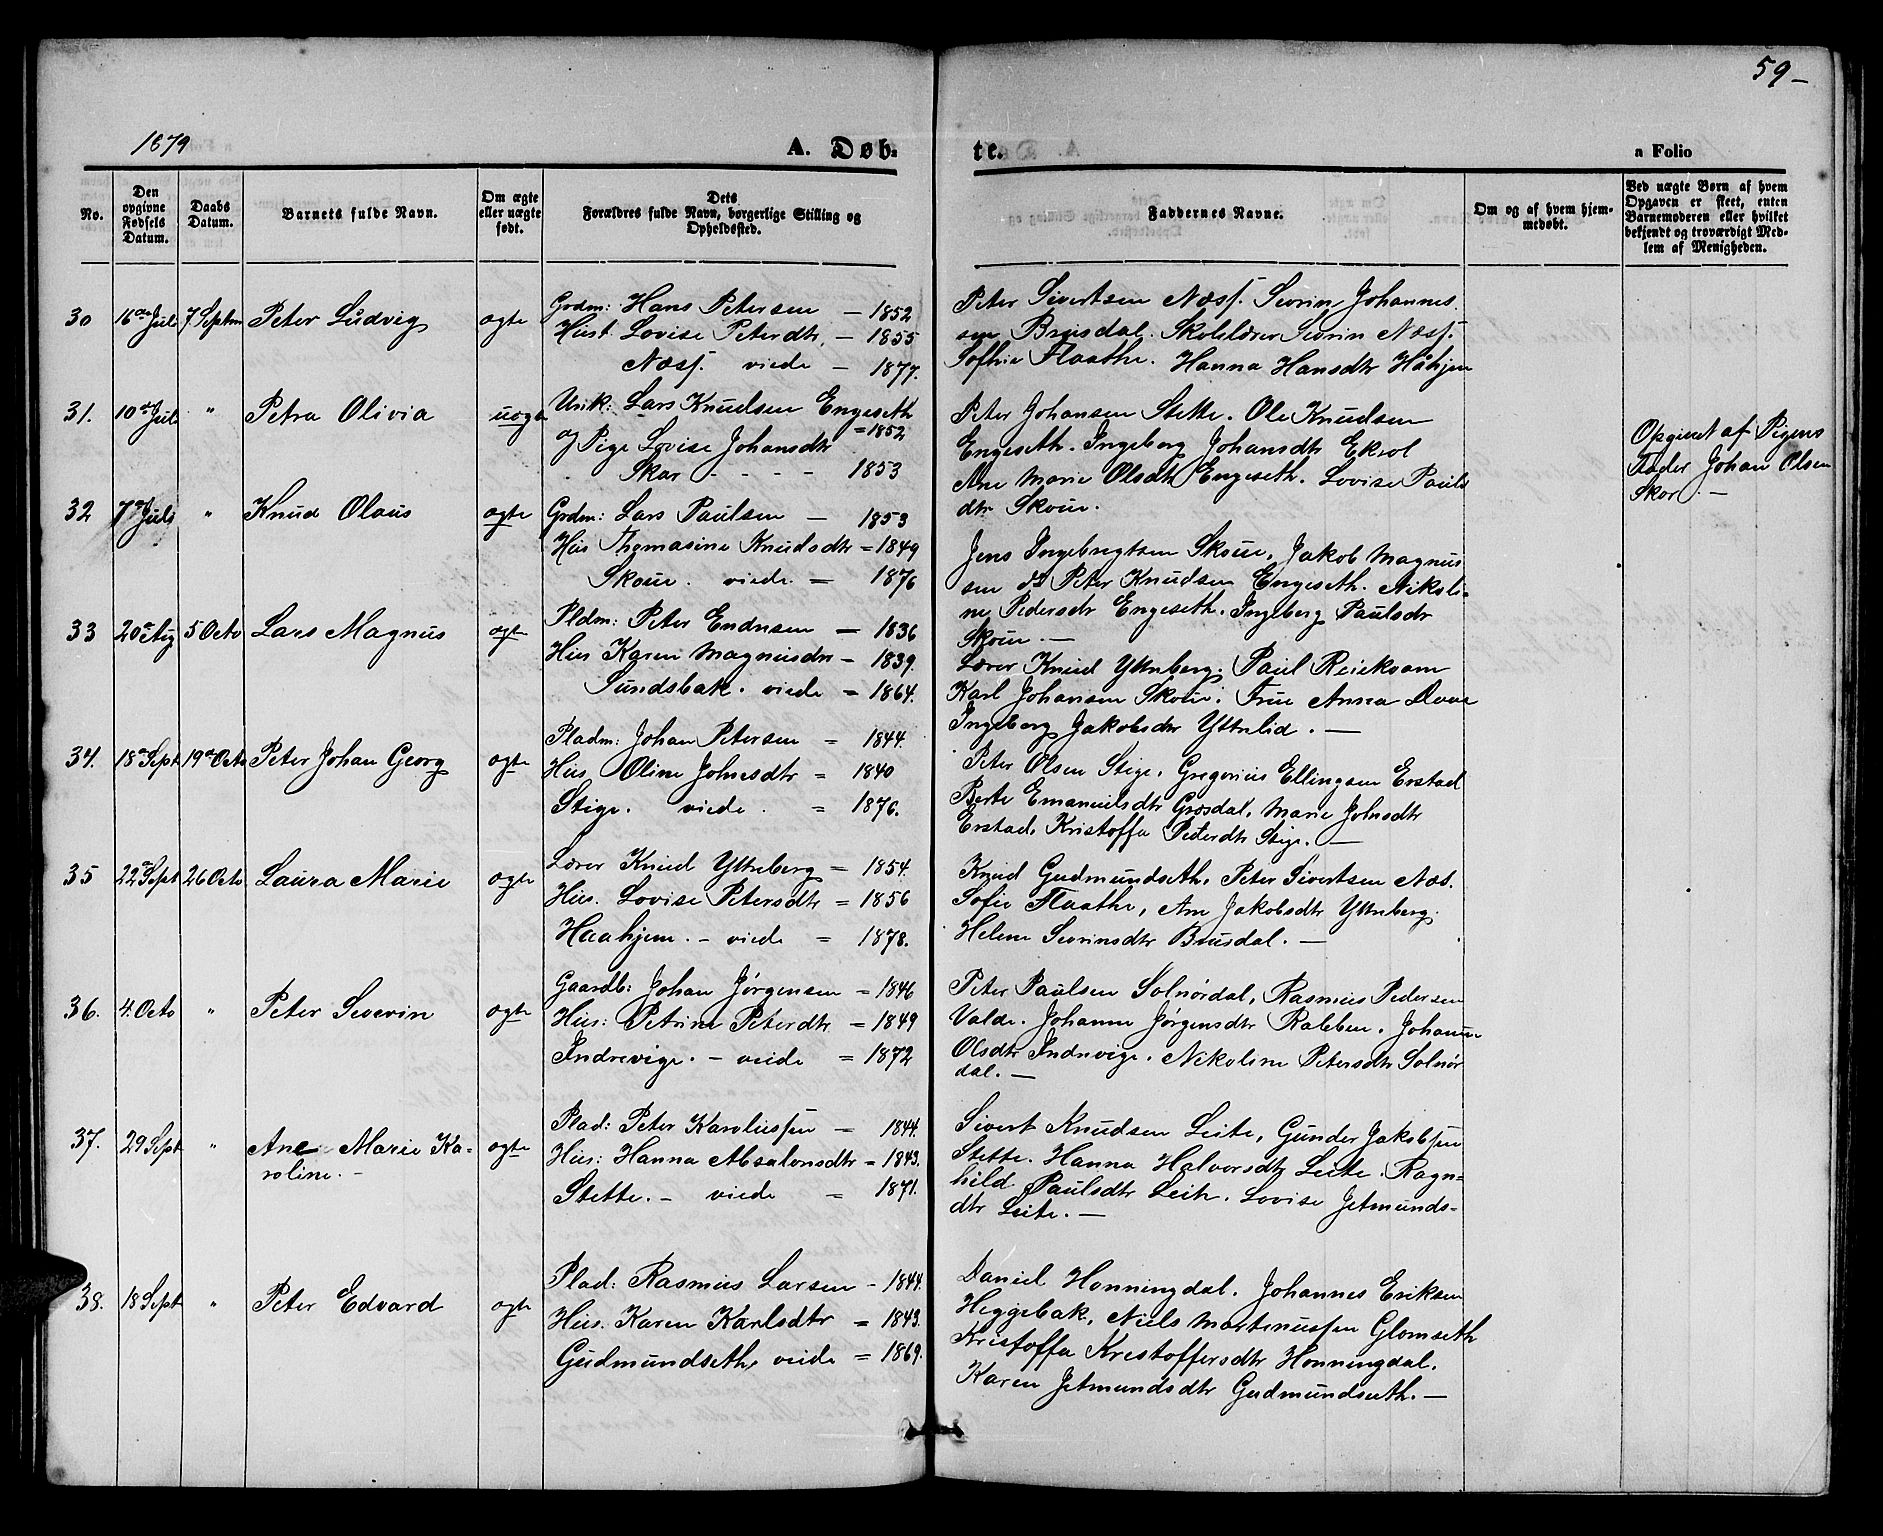 59-
1879
A. Døb-
te.
a Folio
No.
Den opgivne Fødsels Datum.
Daabs Datum.
Barnets fulde Navn.
Om ægte eller uægte født.
Dets Forældres fulde Navn, borgerlige Stilling og Opholdssted.
Faddernes Navne.
Om og af hvem hjemmedøbt.
Ved uægte Børn af hvem Opgaven er skeet, enten Barnemoderen eller hvilket bekjendt og troværdigt Medlem af Menigheden.
30 16de Juli 7 Septm Peter Ludvig ægte Grdm: Hans Petersen — 1852
Hust. Lovise Peterdtr, — 1855
Næss. viede — 1877.
Peter Sivertsen Næss. Sevrin Johannes
sen Brusdal. Skolelærer Sevrin Næss.
Sofhie Flaathe. Hanna Hansdtr Håhjem
31. 10de Juli " Petra Olivia uægte Unk: Lars Knudsen Engeseth
og Pige Lovise Johansdtr = 1852
Skar - - - - 1853
Peter Johansen Stette. Ole Knudsen
Engeseth. Ingeberg Johansdtr Ekrol
Ane Marie Olsdtr Engeseth. Lovise Pauls
dtr Skoue.
Opgivet af Pigens
Fader Johan Olsen
Skor. —
32 7de Juli " Knud Olaus ægte Grdm: Lars Paulsen — 1853
Hus Thomasine Knudsdtr = 1849
Skoue. viede = 1876
Jens Ingebrigtsen Skoue, Jakob Magnus
sen ds Peter Knudsen Engeseth. Nikoli-
ne Pedersdtr Engeseth. Ingeberg Paulsdr
Skoue. —
33 20de Aug 5 Octo Lars Magnus ægte Pldm: Peter Endresen — 1836
Hus Karen Magnusdtr — 1839.
Sundsbak. viede = 1864.
Lærer Knud Yttreberg. Paul Reiekvam
Karl Johansen Skoue. Frue Anna Daae
Ingeberg Jakobsdtr Yttrelid. —
34. 18de Sept 19de Octo Peter Johan Georg ægte Pladm: Johan Petersen = 1844.
Hus Oline Johnsdtr = 1840
Stige. viede. = 1876.
Peter Olsen Stige, Gregorius Ellingsen Erstad
Berte Emanuelsdtr Grøsdal, Marie Johnsdtr
Erstad, Kristoffa Pederdtr Stige. —
35 22de Sept 26 Octo Laura Marie ægte Lærer Knud Yttreberg = 1854.
Hus. Lovise Petersdtr = 1856
Haahjem. — viede = 1878.
Knud Gudmundseth. Peter Sivertsen Næs.
Sofie Flaathe, Ane Jakobsdtr Yttreberg.
Helene Sevrinsdtr Brusdal. —
36. 4. Octo " Peter Severin ægte Gaardb: Johan Jørgensen = 1846
Hus: Petrine Peterdtr = 1849
Indrevige. — viede = 1872
Peter Paulsen Solnørdal, Rasmus Pedersen
Valde. Johanne Jørgensdtr Rabben. Johanne
Olsdtr Indrevige. Nekoline Petersdtr Solnør
dal. —
37. 29 Sept " Ane Marie Ka-
roline. —
ægte Plad: Peter Karolussen = 1844.
Hus: Hanna Absalonsdtr = 1843.
Stette. — viede = 1871.
Sivert Knudsen Leite, Gunder Jakobsen
Stette. Hanna Halvorsdtr Leite. Ragn-
hild Paulsdtr Leite. Lovise Jetmunds-
dtr Leite. —
38. 18 Sept " Peter Edvard ægte Plad: Rasmus Larsen - 1844.
Hus. Karen Karlsdtr = 1843.
Gudmundseth, viede = 1869.
Daniel Honningdal. Johannes Eriksen
Heggebak, Niels Martenussen Glomseth
Kristoffa Kristoffersdtr Honningdal.
Karen Jetmundsdtr Gudmundseth. —